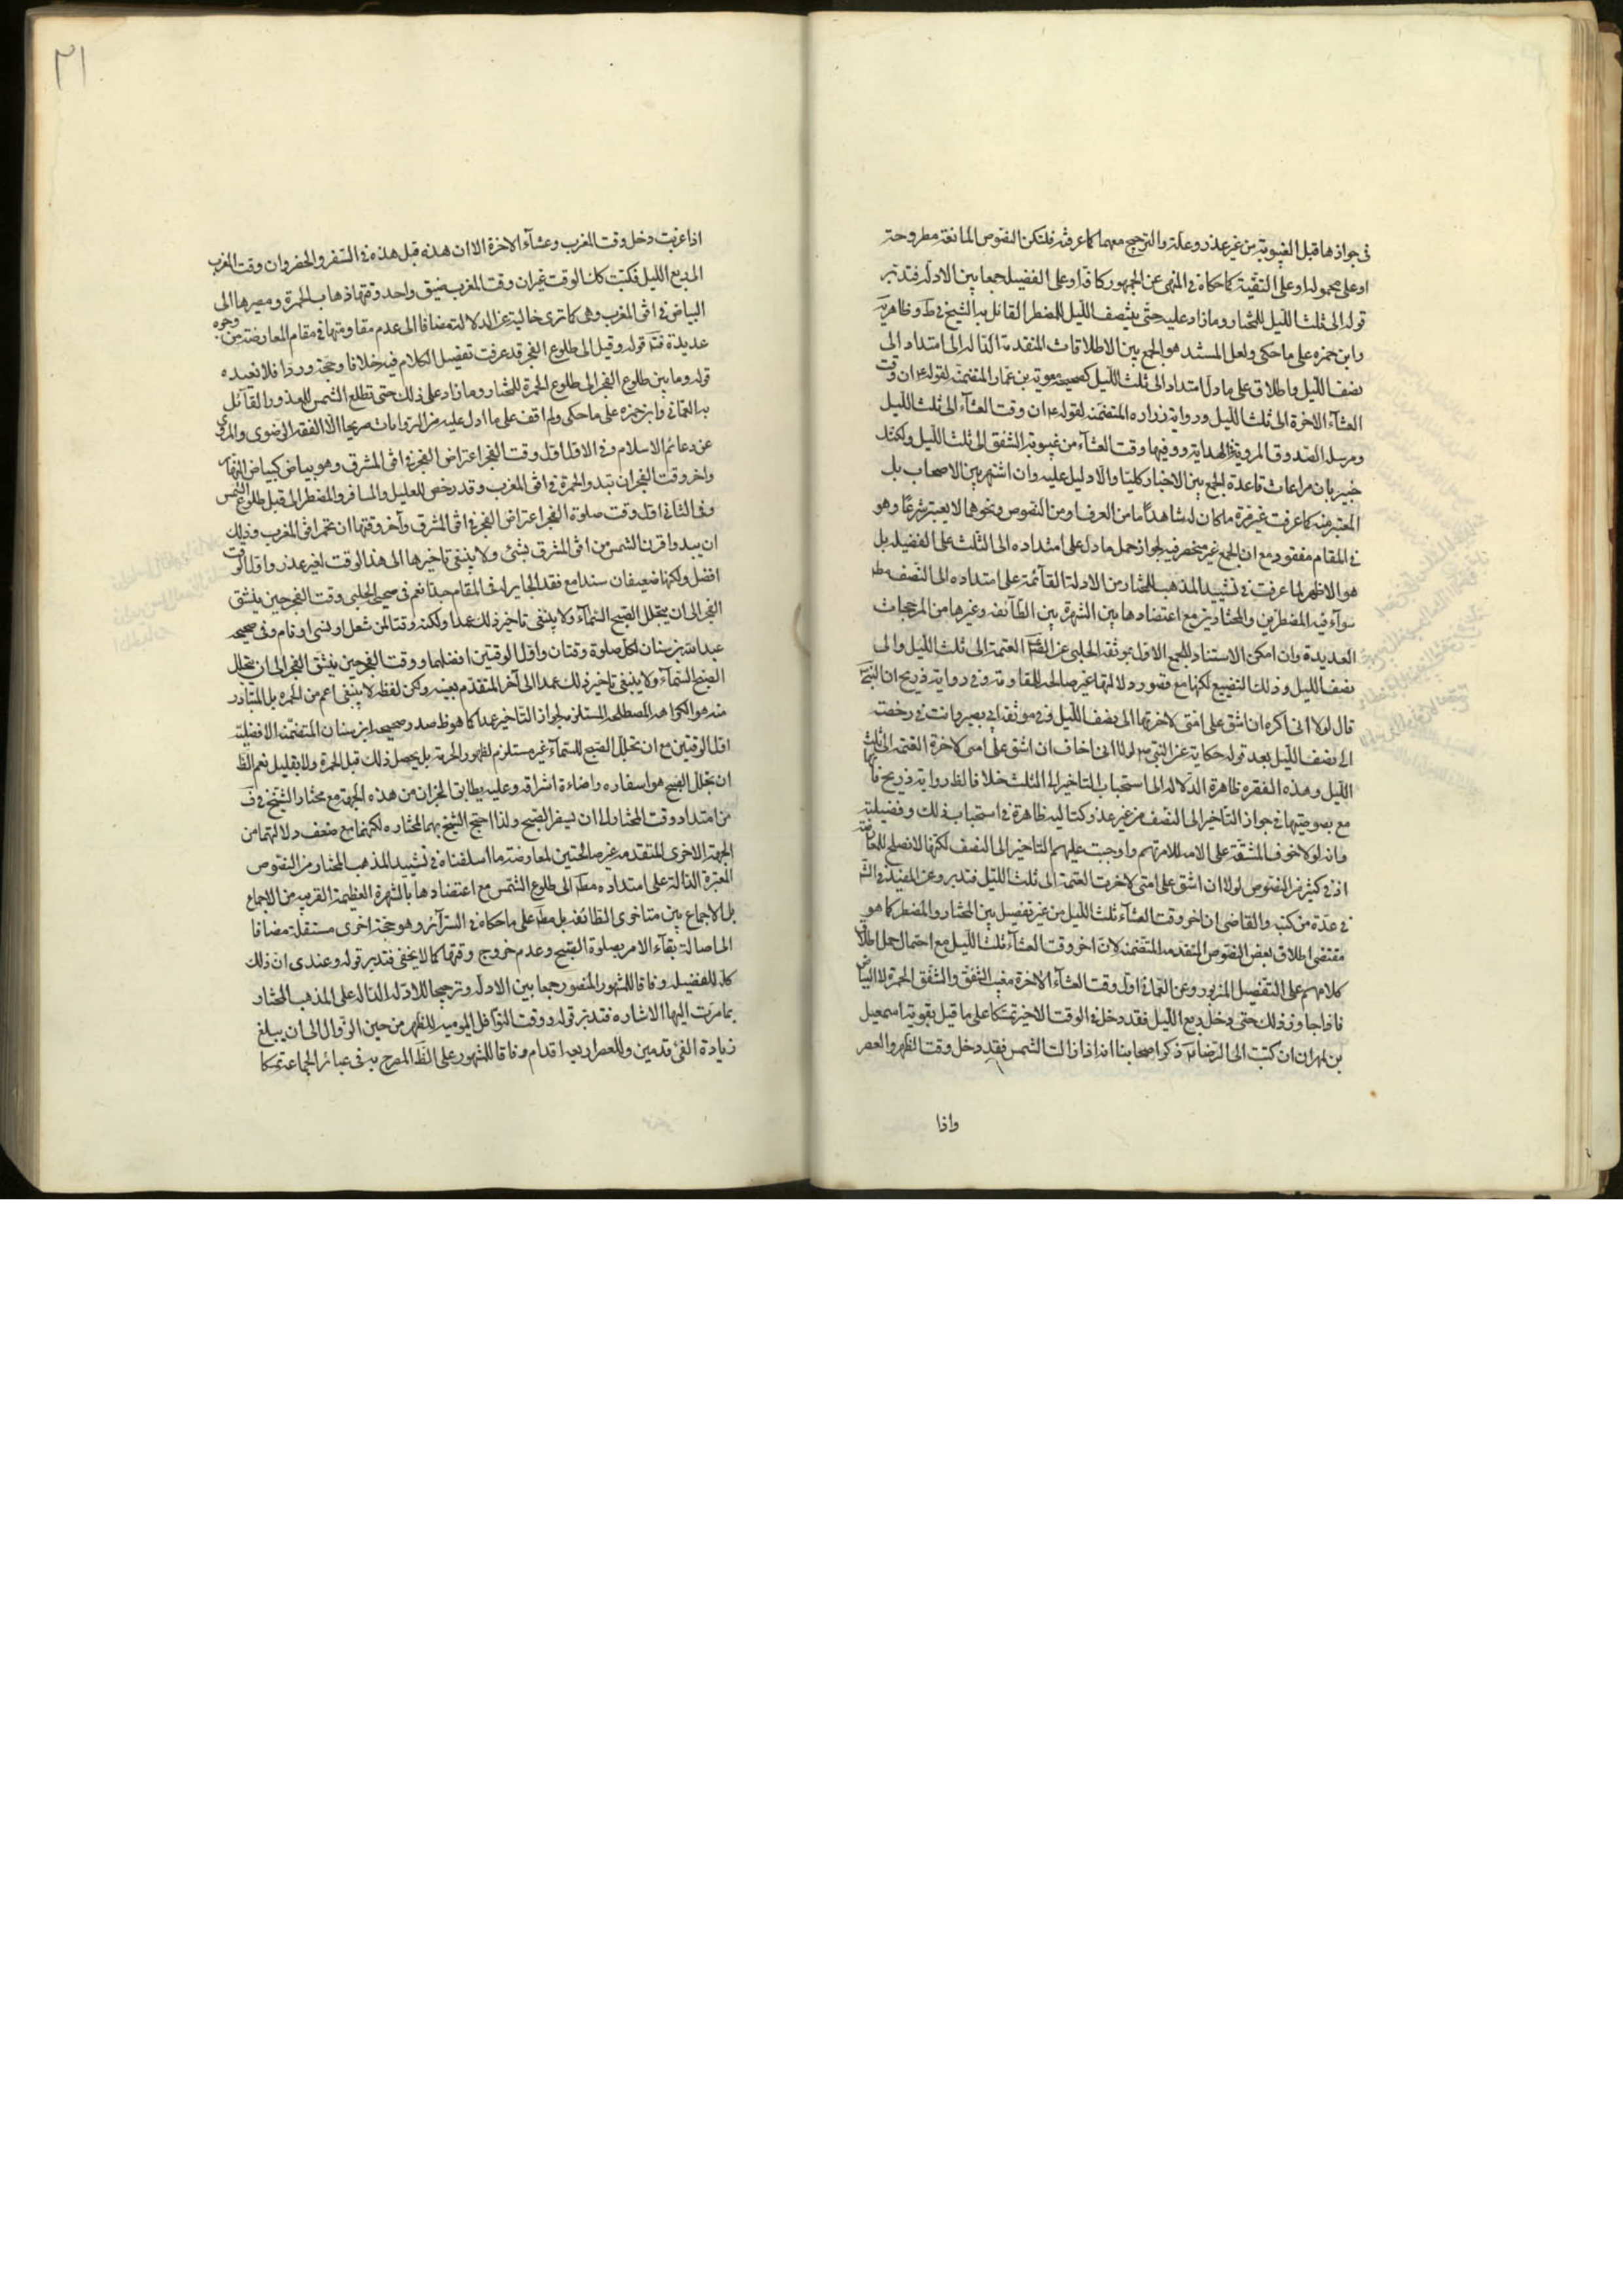 في جوازها قبل الغيبوبة من غير عذر وعلة والترجيح معهما كما عرفته فلتكن النصوص المانعة مطروحة
او على محموله او على التقية كما حكاه في المنهى عن الجمهور كافة او على الفضيلة جمعا بين الادلة فتدبر
قوله الى ثلث الليل للمختار وما زاد عليه حتى ينتصف الليل للمضطر القائل به الشيخ في ط وظاهر يه
وابن حمزه على ما حكى ولعل المستند هو الجمع بين الاطلاقات المتقدمة الدالة الى امتداد الى
نصف الليل واطلاق على ما دل امتداد الى ثلث الليل كصحيحة معوية بن عمار المتضمنة لقوله ع ان وقت
العشآء الاخرة الى ثلث الليل ورواية زراره المتضمنة لقوله ع ان وقت العشآء الى ثلث الليل
ومرسلة الصدوق المروية في الهداية وفيها وقت العشآء من غيبوبة الشفق الى ثلث الليل ولكنك
خبير بان مراعات قاعدة الجمع بين الاخبار كليتا والا دليل عليه وان اشتهر بين الاصحاب بل
المعتبر منه كما عرفت غير مرة ما كان له شاهدا ما من العرف او من النصوص ونحوهما لا يعتبر شرعا وهو
في المقام مفقود مع ان الجمع غير منحصر فيه لجواز حمل ما دل على امتداده الى الثلث على الفضيلة بل
هو الاظهر لما عرفت في تشييد المذهب المختار من الادلة القآئمة على امتداده الى النصف مط
سوآء فيه المضطرين والمختارين مع اعتضادها بين الشهرة بين الطآئفه وغيرها من المرجحات
العديدة وان امكن الاستناد للجمع الاول بموثقة الحلبى عن العتمة الى ثلث الليل والى
نصف الليل وذلك التضييع لكنها مع قصور دلالتها غير صالحة للمقاومة وفي رواية ذريح ان النبي
قال لولا انى اكره ان اشق على امتى لاخرتها الى نصف الليل وفي موثقة ابي بصير وانت في رخصة
الى نصف الليل بعد قوله حكاية عن النبي ص لولا انى اخاف ان اشق على امتى لاخرة العتمه الى ثلث
الليل وهذه الفقره ظاهرة الدلاله الى استحباب التاخير الى الثلث خلافا لظ رواية ذريح فانها
مع بصوصيتها في جواز التاخير الى النصف من غير عذر وكتاليه ظاهرة في استحباب ذلك وفضيلته
وانه لولا خوف المشقة على الامه للامرتهم واوجبت عليهم التاخير الى النصف لكنها لا تصلح للمعارضة
اذ في كثير من النصوص لولا ان اشق على امتى لاخرت العتمة الى ثلث الليل فتدبر وعن المفيد و
في عدة من كتبه والقاضى ان اخر وقت العشآء ثلث الليل من غير تفصيل بين المختار والمضطر كما هو
مقتضى اطلاق بعض النصوص المتقدمه المتضمنه لان اخر وقت العشآء ثلث الليل مع احتمال حمل اطلاق
كلامهم على التفصيل المزبور وعن العمانى اول وقت العشآء الاخرة مغيب الشفق والشفق الحمرة لا البياض
فاذا جاوز ذلك حتى دخل ربع الليل فقد دخل في الوقت الاخير تمسكا على ما قيل بقوية اسمعيل
بن مهران ان كتبت الى الرضا ع ذكر اصحابنا انه اذا زالت الشمس فقد دخل وقت الظهر والعصر
واذا
٣١
اذا غربت دخل وقت المغرب وعشآء الاخرة الا ان هذه قبل هذه في السفر والحضر وان وقت المغرب
الى ربع الليل فكتب كك الوقت غير ان وقت المغرب ضيق واحد وقتها ذهاب الحمرة ومصيرها الى
البياض في افق المغرب وهى كما ترى خالية عن الدلالة مضافا الى عدم مقاومتها في مقام المعارضة من وجوه
عديدة فتد قوله وقيل الى طلوع الفجر قد عرفت تفصيل الكلام فيه خلافا وحجة وردا فلا نعيده
قوله وما بين طلوع الفجر الى طلوع الحمرة للمختار وما زاد على ذلك حتى تطلع الشمس للمعذور القآئل
به العمانى وابن حمزه على ما حكى ولم اقف على ما ادل عليه من الروايات صريحا الا الفقه الرضوى والمروى
عن دعائم الاسلام وفي الاول اول وقت الفجر اعتراض الفجر في افق المشرق وهو بياض كبياض النهار
واخر وقت الفجر ان تبدو الحمرة في افق المغرب وقد رخص للعليل والمسافر والمضطر الى قبل طلوع الشمس
وفى الثانى اول وقت صلوة الفجر اعتراض الفجر في افق المشرق وآخر وقتها ان تحمر افق المغرب وذلك
ان يبدوا قرن الشمس من افق المشرق بشئ ولا ينبغى تاخيرها الى هذا الوقت لغير عذر واول الوقت
افضل ولكنها ضعيفان سندا مع فقد الجابر له في المقام جدا نعم في صحيح الحلبى وقت الفجر حين ينشق
الفجر الى ان يتجلل الصبح السمآء ولا ينبغى تاخير ذلك عمدا ولكنه وقت لمن شغل او نسى او نام وفى صحيحه
عبد الله بن سنان لكل صلوة وقتان واول الوقتين افضلهما ووقت الفجر حين ينشق الفجر الى ان يتجلل
الصبح السمآء ولا ينبغى تاخير ذلك عمدا الى آخر المتقدم بعينه ولكن لفظ لا ينبغى اعم من الحرمة بل المتبادر
منه هو الكراهة المصطلحه المستلزمه لجواز التاخير عمدا كما هو ظ صدر صحيحه ابن سنان المتضمنه الافضلية
اول الوقتين مع ان تجلل الصبح للسمآء غير مستلزم لظهور الحرمة بل يحصل ذلك قبل الحمرة ولا بقليل نعم الظ
ان تجلل الصبح هو اسفاره واضاءة اشراقه وعليه يطابق الخبران من هذه الجهة مع مختار الشيخ في ف
من امتداد وقت المختار له الى ان يسفر الصبح ولذا احتج الشيخ بهما لمختاره لكنهما مع ضعف دلالتهما من
الجهة الاخرى المتقدمه غير صالحتين لمعارضة ما اسلفناه في تشييد المذهب المختار من النصوص
المعتبرة الدالة على امتداده مط الى طلوع الشمس مع اعتضادها بالشهرة العظيمة القريبه من الاجماع
بل الاجماع بين متاخرى الطائفه بل مط على ما حكاه في السرآئر وهو حجة اخرى مستقلة مضافا
الى اصالة بقآء الامر بصلوة الصبح وعدم خروج وقتها كما لا يخفى فتدبر قوله وعندى ان ذلك
كله للفضيله وفاقا للمشهور المنصور جمعا بين الادله وترجيحا للادله الداله على المذهب المختار
بما مرت اليها الاشاره فتدبر قوله ووقت النوافل اليوميه للظهر من حين الزوال الى ان يبلغ
زيادة الفئ قدمين وللعصر اربعه اقدام وفاقا للمشهور على الظ المصرح به في عبائر الجماعة تمسكا